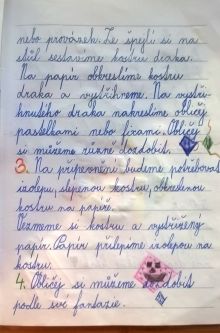 nebo provázek. Ze špejlí si na
stůl sestavíme kostru draka.
Na papír obkreslíme kostru
draka a vystřihneme. Na vystři-
hnutého draka nakreslíme obličej
pastelkami nebo fixami. Obličej
si můžeme různě dozdobit.
3. Na připevnění budeme potřebovat
izolepu, slepenou kostru, obkreslenou
kostru na papíře.
Vezmeme si kostru a vystřižený
papír. Papír přilepíme izolepou na
kostru.
4. Obličej si můžeme dozdobit
podle své fantazie.